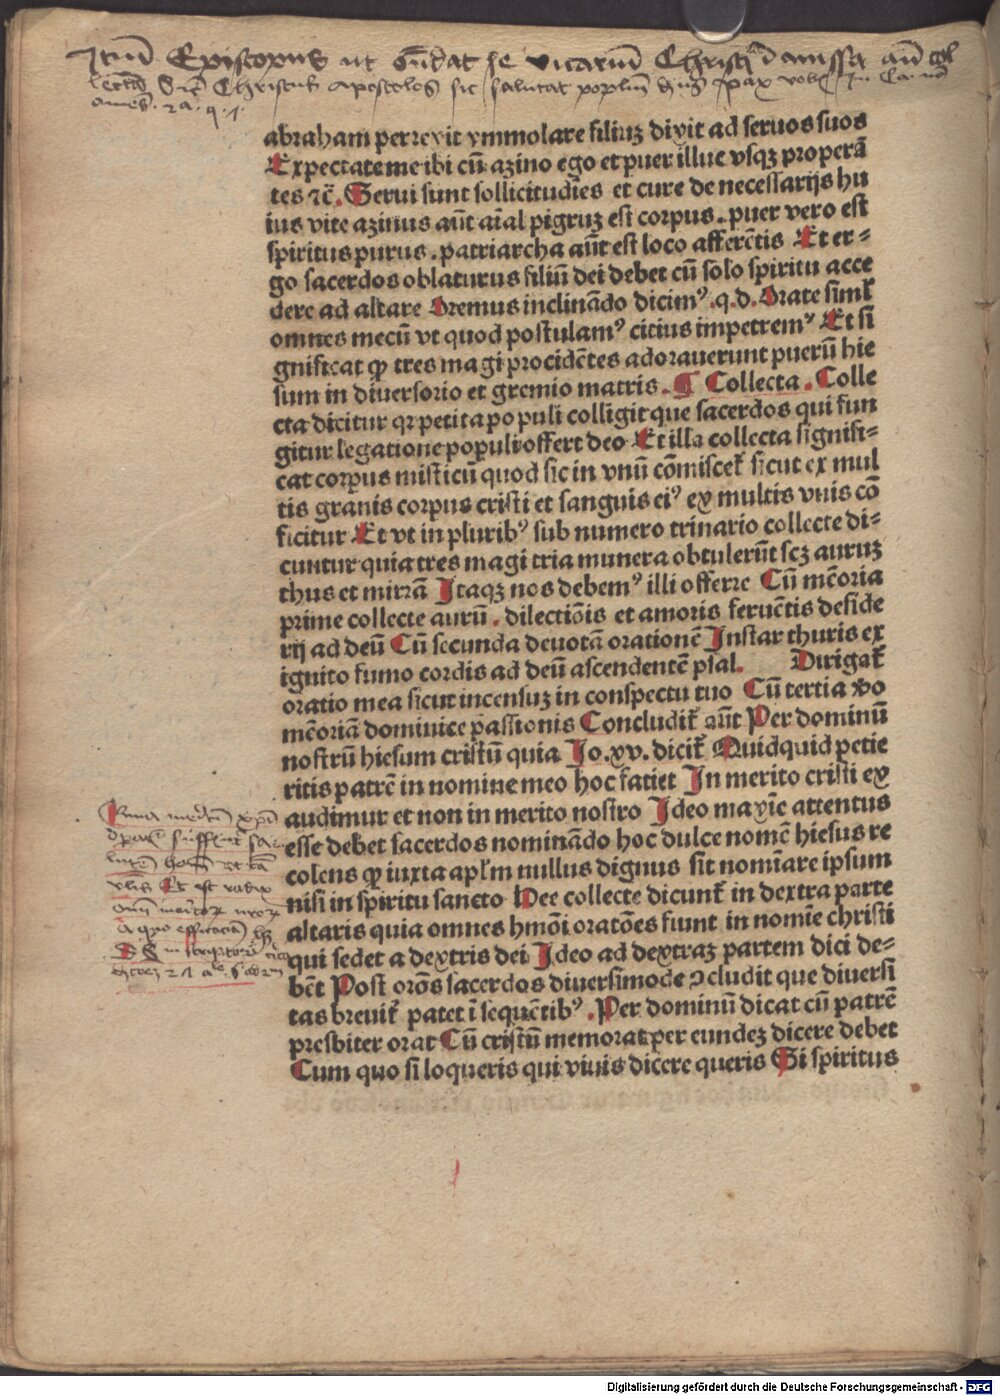 Itē Episcopus ut ondat se vicariū Christi i missa añ col
lectā dicit Christus apostolos sic salutat populum dicens pax vobis
abraham perrexit ymmolare filiuʒ dixit ad seruos suos
Expectate me ibi cū aʒino ego et puer illuc vsqʒ properā
tes ⁊c̄. Serui sunt sollicitudīes et cure de necessarijs hu
ius vite aʒinus aūt aīal pigruʒ est corpus. puer vero est
spiritus purus. patriarcha aūt est loco afferētis Et er⸗
go sacerdos oblaturus filiū dei debet cū solo spiritu acce
dere ad altare Oremus inclinādo dicimꝰ .q.d. Orate siml̄
omnes mecū vt quod postulamꝰ citius impetremꝰ Et si
gnificat ꝙ tres magi procidētes adorauerunt puerū hie
sum in diuersorio et gremio matris. ¶ Collecta. Colle
cta dicitur qꝛ petita populi colligit que sacerdos qui fun
gitur legatione populi offert deo Et illa collecta signifi⸗
cat corpus misticū quod sic in vnū cōmiscet᷑ sicut ex mul
tis granis corpus cristi et sanguis eiꝰ ex multis vuis cō
ficitur Et vt in pluribꝰ sub numero trinario collecte di⸗
cuntur quia tres magi tria munera obtulerūt scʒ auruʒ
thus et mirrā Itaqʒ nos debemꝰ illi offerre Cū mēoria
prime collecte aurū. dilectiōis et amoris feruētis deside
rij ad deū Cū secunda deuotā orationē Instar thuris ex
ignito fumo cordis ad deū ascendentē psal. Dirigat᷑
oratio mea sicut incensuʒ in conspectu tuo Cū tertia ꝟo
mēoriā dominice passionis Concludit᷑ aūt Per dominū
nostrū hiesum cristū quia Jo.xv. dicit᷑ Quidquid petie
ritis patrē in nomine meo hoc faciet In merito cristi ex
audimur et non in merito nostro Ideo maxīe attentus
esse debet sacerdos nominādo hoc dulce nomē hiesus re
colens ꝙ iuxta apl̄m nullus dignus sit nomīare ipsum
nisi in spiritu sancto Hee collecte dicunt᷑ in dextra parte
altaris quia omnes hmōi oratōes fiunt in nomīe christi
qui sedet a dextris dei Ideo ad dextraʒ partem dici de⸗
bēt Post orōs sacerdos diuersimode ↄcludit que diuersi
tas breuit᷑ patet ī sequētibꝰ. Per dominū dicat cū patrē
presbiter orat Cū cristū memorat per eundeʒ dicere debet
Cum quo si loqueris qui viuis dicere queris Si spiritus
Digitalisierung gefördert durch die Deutsche Forschungsgemeinschaft - DFG